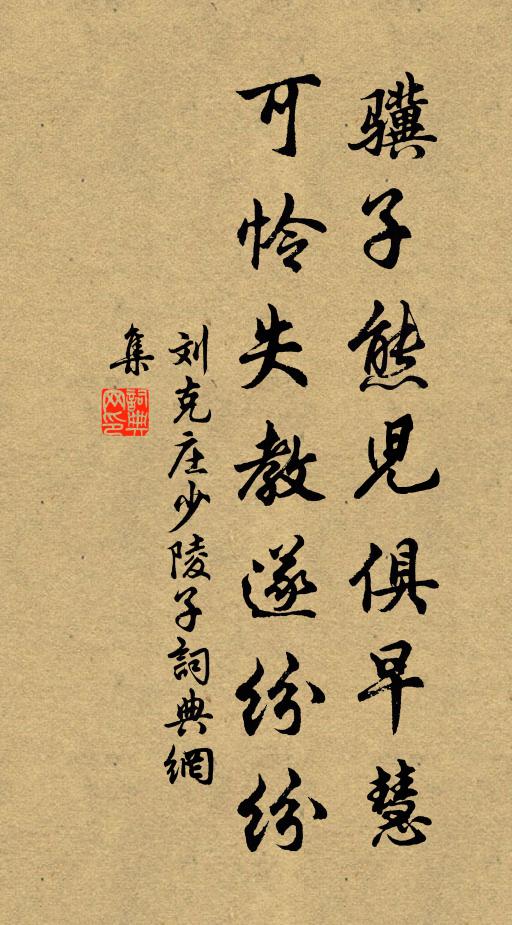 骥子熊児俱早慧
可怜失教遂纷纷
刘克庄少陵子詞典網
集
詞典
网印